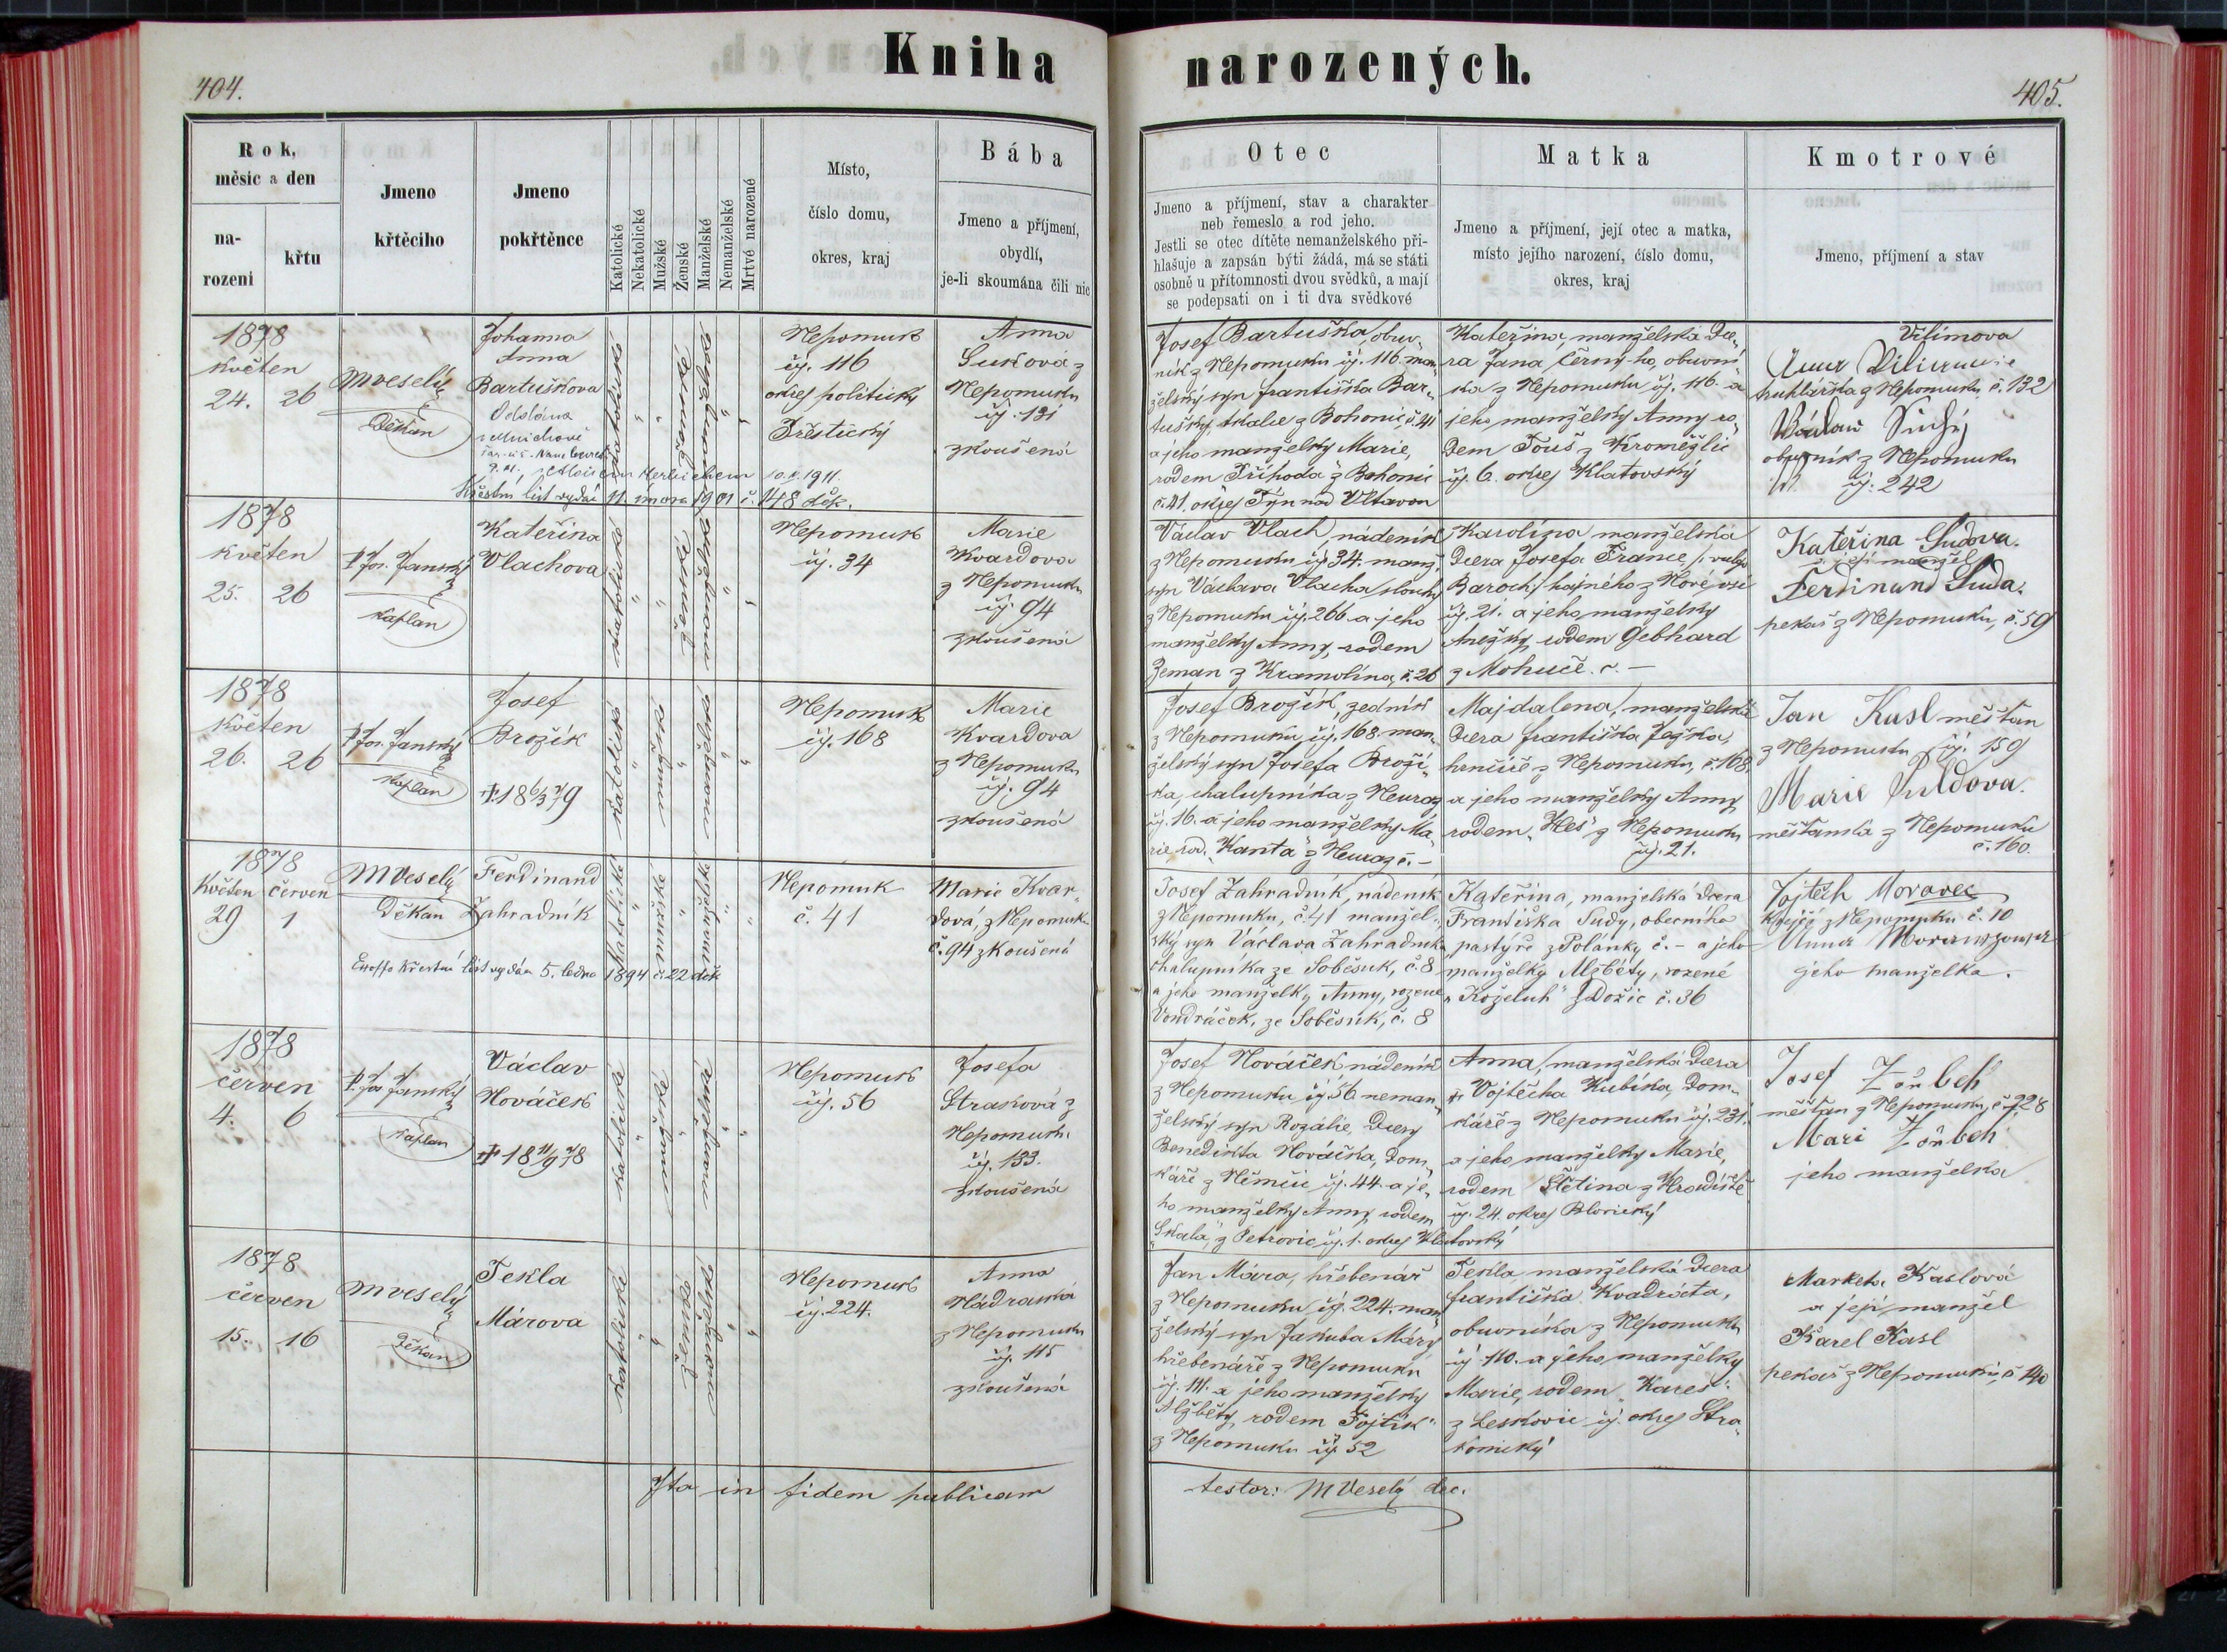 Kniha narozených.
404.
405.
Rok, měsíc a den
narození
křtu
Jmeno křtěcího
Jmeno pokřtěnce
Katolické
Nekatolické
Mužské
Ženské
Manželské
Nemanželské
Mrtvě narozené
Místo,
číslo domu,
okres, kraj
Bába
Jmeno a příjmení,
obydlí,
je-li skoumána čili nic
Otec
Jmeno a příjmení, stav a charakter
neb řemeslo a rod jeho.
Jestli se otec dítěte nemanželského při-
hlašuje a zapsán býti žádá, má se státi
osobně u přítomnosti dvou svědků, a mají
se podepsati on i ti dva svědkové
Matka
Jmeno a příjmení, její otec a matka,
místo jejího narození, číslo domu,
okres, kraj
Kmotrové
Jmeno, příjmení a stav
1878
květen
24. 26
MVeselý
Děkan
Johanna
Anna
Bartuškova
Křestní list vydán 11. února 1901 č. 148 děk.
katolické
ženské
manželské
Nepomuk
čj. 116
okres politický
Přeštický
Anna
Suková z
Nepomuku
čj. 131
zkoušená
Josef Bartuška, obuv-
ník z Nepomuku čj. 116. man-
želský syn Františka Bar-
tušky, tkalce z Bohonic, č. 41
a jeho manželky Marie,
rodem Příhoda z Bohonic
č. 41. okres Týn nad Vltavou
Kateřina, manželská dce-
ra Jana Černý-ho, obuvní-
ka z Nepomuku čj. 116. a
jeho manželky Anny ro-
dem Touš z Kroměždic
čj. 6. okres Klatovský
Vilímova
truhlářka z Nepomuku č. 132
Václav Suchý
obuvník z Nepomuku
čj. 242
1878
květen
25. 26
P. Jos. Janský
kaplan
Kateřina
Vlachova
katolické
ženské
manželské
Nepomuk
čj. 34
Marie
Kvardova
z Nepomuku
čj. 94
zkoušená
Václav Vlach, nádeník
z Nepomuku čj. 34. manž.
syn Václava Vlacha, slouhy
z Nepomuku čj. 266. a jeho
manželky Anny, rodem
Zeman z Kramolína, č. 26
Karolína manželská
dcera Josefa France /: vulgo
Baroch :/ hajného z Nové vsi
čj. 21. a jeho manželky
Anežky, rodem Gebhard
z Mohuče. č. –
Kateřina Sudova.
a její manžel
Ferdinand Suda.
pekař z Nepomuku, č. 59
1878
květen
26. 26
P. Jos. Janský
kaplan
Josef
Brožík
† 18 6/3 79
katolické
mužské
manželské
Nepomuk
čj. 168
Marie
Kvardova
z Nepomuku
čj. 94
zkoušená
Josef Brožík, zedník
z Nepomuku čj. 168. man-
želský syn Josefa Broží-
ka, chalupníka z Neuraz
čj. 16. a jeho manželky Ma-
rie rod. „Kanta“ z Neuraz č. –
Majdalena, manželská
dcera Františka Ježka,
hrnčíře z Nepomuku, č. 168.
a jeho manželky Anny
rodem „Hes“ z Nepomuku
čj. 21.
Jan Kasl měšťan
z Nepomuku čj. 159
Marie Puldova.
měšťanka z Nepomuku
č. 160.
1878
Květen červen
29 1
MVeselý
Děkan
Ferdinand
Zahradník
křestní list vydán 5. ledna 1894 č. 22 děk
Katolické
mužské
manželské
Nepomuk
č. 41
Marie Kvar-
dova, z Nepomuku
č. 94 zkoušená
Josef Zahradník, nádeník
z Nepomuku, č. 41 manžel-
ský syn Václava Zahradníka
chalupníka ze Soběsuk, č. 8
a jeho manželky Anny, rozené
Vondráček, ze Soběsuk, č. 8
Kateřina, manželská dcera
Františka Sudy, obecního
pastýře z Polánky č. – a jeho
manželky Alžběty, rozené
„Koželuh“ z Dožic č. 36
Vojtěch Moravec
Krejčí z Nepomuku č. 10
jeho manželka.
1878
červen
4. 6
P. Jos. Janský
kaplan
Václav
Nováček
† 18 11/9 78
katolické
mužské
manželské
Nepomuk
čj. 56
Josefa
Straková z
Nepomuku
čj. 133.
zkoušená
Josef Nováček nádeník
z Nepomuku čj. 56. neman-
želský syn Rozálie dcery
Benedikta Nováčka, dom-
káře z Němčic čj. 44. a je-
ho manželky Anny, rodem
„Skala“ z Petrovic čj. 1. okres Klatovský
Anna, manželská dcera
† Vojtěcha Kubíka, dom-
káře z Nepomuku čj. 231.
a jeho manželky Marie,
rodem Štětina z Hradiště
čj. 24. okres Blovický
Josef
měšťan z Nepomuku, č. 228
Mari
jeho manželka
1878
červen
15. 16
MVeselý
Děkan
Tekla
Márova
katolické
ženské
manželské
Nepomuk
čj. 224.
Anna
Nádraská
z Nepomuku
čj. 115
zkoušená
Jan Mára, hřebenář
z Nepomuku čj. 224. man-
želský syn Jakuba Máry
hřebenáře z Nepomuku
čj. 111. a jeho manželky
Alžběty, rodem „Fojtík“
z Nepomuku čj. 52
Tekla manželská dcera
Františka Kvadráta,
obuvníka z Nepomuku
čj. 110. a jeho manželky
Marie, rodem „Kares“
z Leskovic čj. okres Stra-
konický
Marketa Kaslová
a její manžel
Karel Kasl
pekař z Nepomuku, č. 140
Ita in fidem publicam
testor: MVeselý dec.